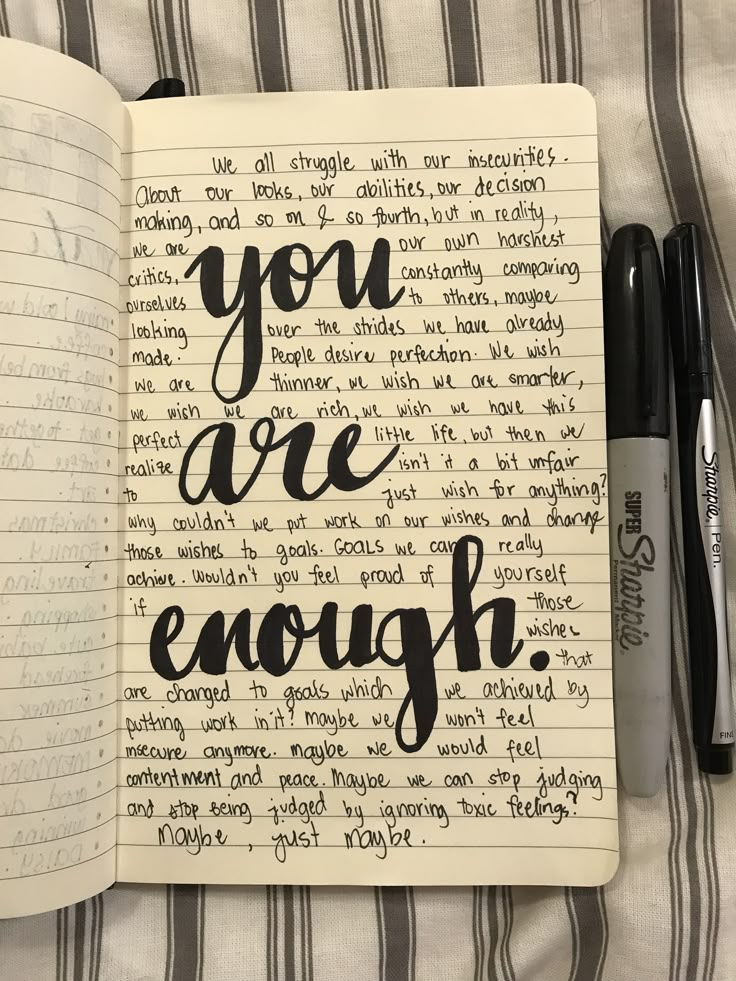 We all struggle with our insecurities.
About our looks, our abilities, our decision
making, and so on & so fourth, but in reality,
we are our own harshest
critics, constantly comparing
ourselves to others, maybe
looking over the strides we have already
made. People desire perfection. We wish
we are thinner, we wish we are smarter,
we wish we are rich, we wish we have this
perfect little life, but then we
realize isn't it a bit unfair
to just wish for anything?
why couldn't we put work on our wishes and change
those wishes to goals. GOALS we can really
achieve. Wouldn't you feel proud of yourself
if those
wishes
that
are changed to goals which we achieved by
putting work in it? Maybe we won't feel
insecure anymore. Maybe we would feel
contentment and peace. Maybe we can stop judging
and stop being judged by ignoring toxic feelings?
Maybe, just maybe.
you
are
enough.
SUPER
Sharpie
Sharpie. Pen.